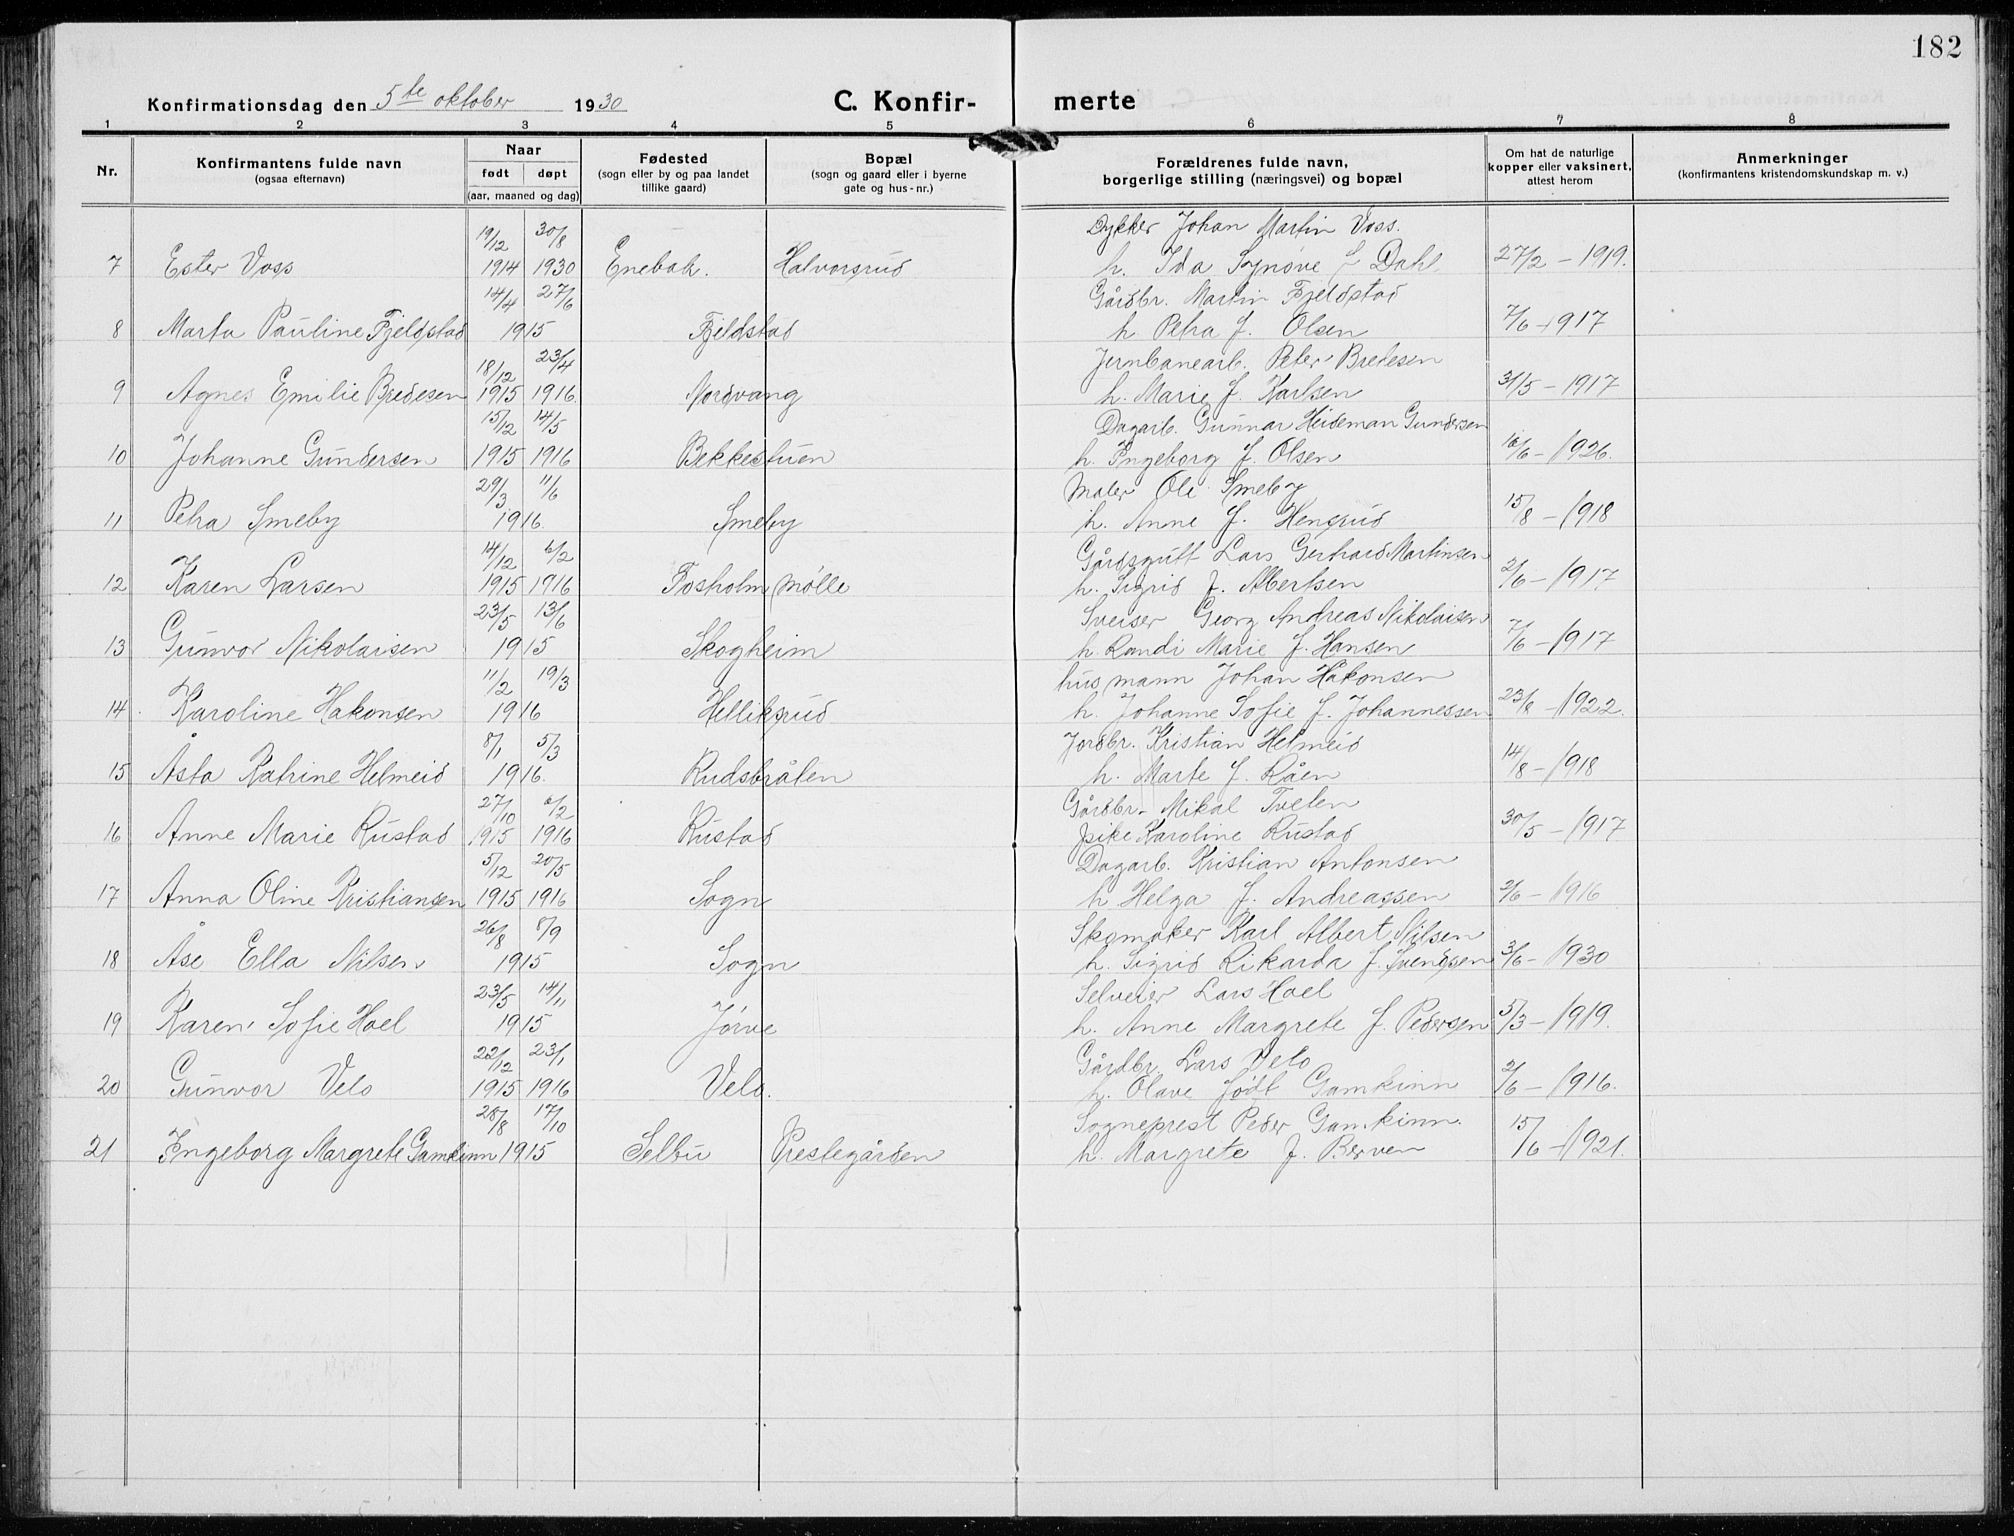 182
Konfirmationsdag den 5te oktober 1930 C. Konfir- merte
1 2 3 4 5 6 7 8
Nr. Konfirmantens fulde navn (ogsaa efternavn) Naar født døpt (aar, maaned og dag) Fødested (sogn eller by og paa landet tillike gaard) Bopæl (sogn og gaard eller i byerne gate og hus-nr.) Forældrenes fulde navn, borgerlige stilling (næringsvei) og bopæl Om hat de naturlige kopper eller vaksinert, attest herom Anmerkninger (konfirmantens kristendomskundskap m. v.)
19/12 30/8 Dykker Johan Martin Voss.
7 Ester Voss 1914 1930 Enebak. Halvorsrud h. Ida Synøve f Dahl 27/2 - 1919.
14/4 27/6 Gårdbr. Martin Fjeldstad
8 Marta Pauline Fjeldstad 1915 Fjeldstad h Petra f. Olsen 7/6 - 1917
18/12 23/4 Jernbanearb. Peter Bredesen
9 Agnes Emilie Bredesen 1915 1916. Nordvang h. Marie f. Karlsen 31/5 - 1917
15/12 14/5 Dagarb. Gunnar Heideman Gundersen
10 Johanne Gundersen 1915 1916 Bekkestuen h. Ingeborg f. Olsen 16/6 - 1926.
29/3 11/6 Maler Ole Smeby
11 Petra Smeby 1916. Smeby h. Anne f. Hensrud 15/8 - 1918
14/12 6/2 Gårdsgutt Lars Gerhard Martinsen
12 Karen Larsen 1915 1916 Fosholm mølle h. Sigrid f. Albertsen 2/6 - 1917
23/5 13/6 Sveiser Georg Andreas Nikolaisen
13 Gunvor Nikolaisen 1915 Skogheim h. Randi Marie f. Hansen 7/6 - 1917
11/2 19/3 husmann Johan Håkonsen
14. Karoline Hakonsen 1916 Helliksrud h. Johanne Sofie f. Johannessen 23/8 - 1922.
8/1 5/3 Jordbr. Kristian Helmeid
15 Åsta Katrine Helmeid 1916. Rudsbråten h. Marte f. Råen 14/8 - 1918
27/10 6/2 Gårdbr. Mikal Tveten
16 Anne Marie Rustad 1915 1916 Rustad pike Karoline Rustad 30/5 - 1917
5/12 20/5 Dagarb. Kristian Antonsen
17 Anna Oline Kristiansen 1915 1916 Sogn h Helga f. Andreassen 2/6 - 1916
26/8 8/9 Skomaker Karl Albert Nilsen
18 Åse Ella Nilsen 1915 Sogn h. Sigrid Rikarda f. Svendsen 3/6 - 1930
23/5 14/11 Selveier Lars Hoel
19 Karen Sofie Hoel 1915 Jørve h. Anne Margrete f. Pedersen 5/3 - 1919.
22/12 23/1 Gårdbr. Lars Velo
20 Gunvor Velo 1915 1916 Velo. h. Olave født Gamkinn 2/6 - 1916.
28/8 17/10 Sogneprest Peder Gamkinn.
21 Ingeborg Margrete Gamkinn 1915 Selbu Prestegården h. Margrete f. Berven 15/6 - 1921.